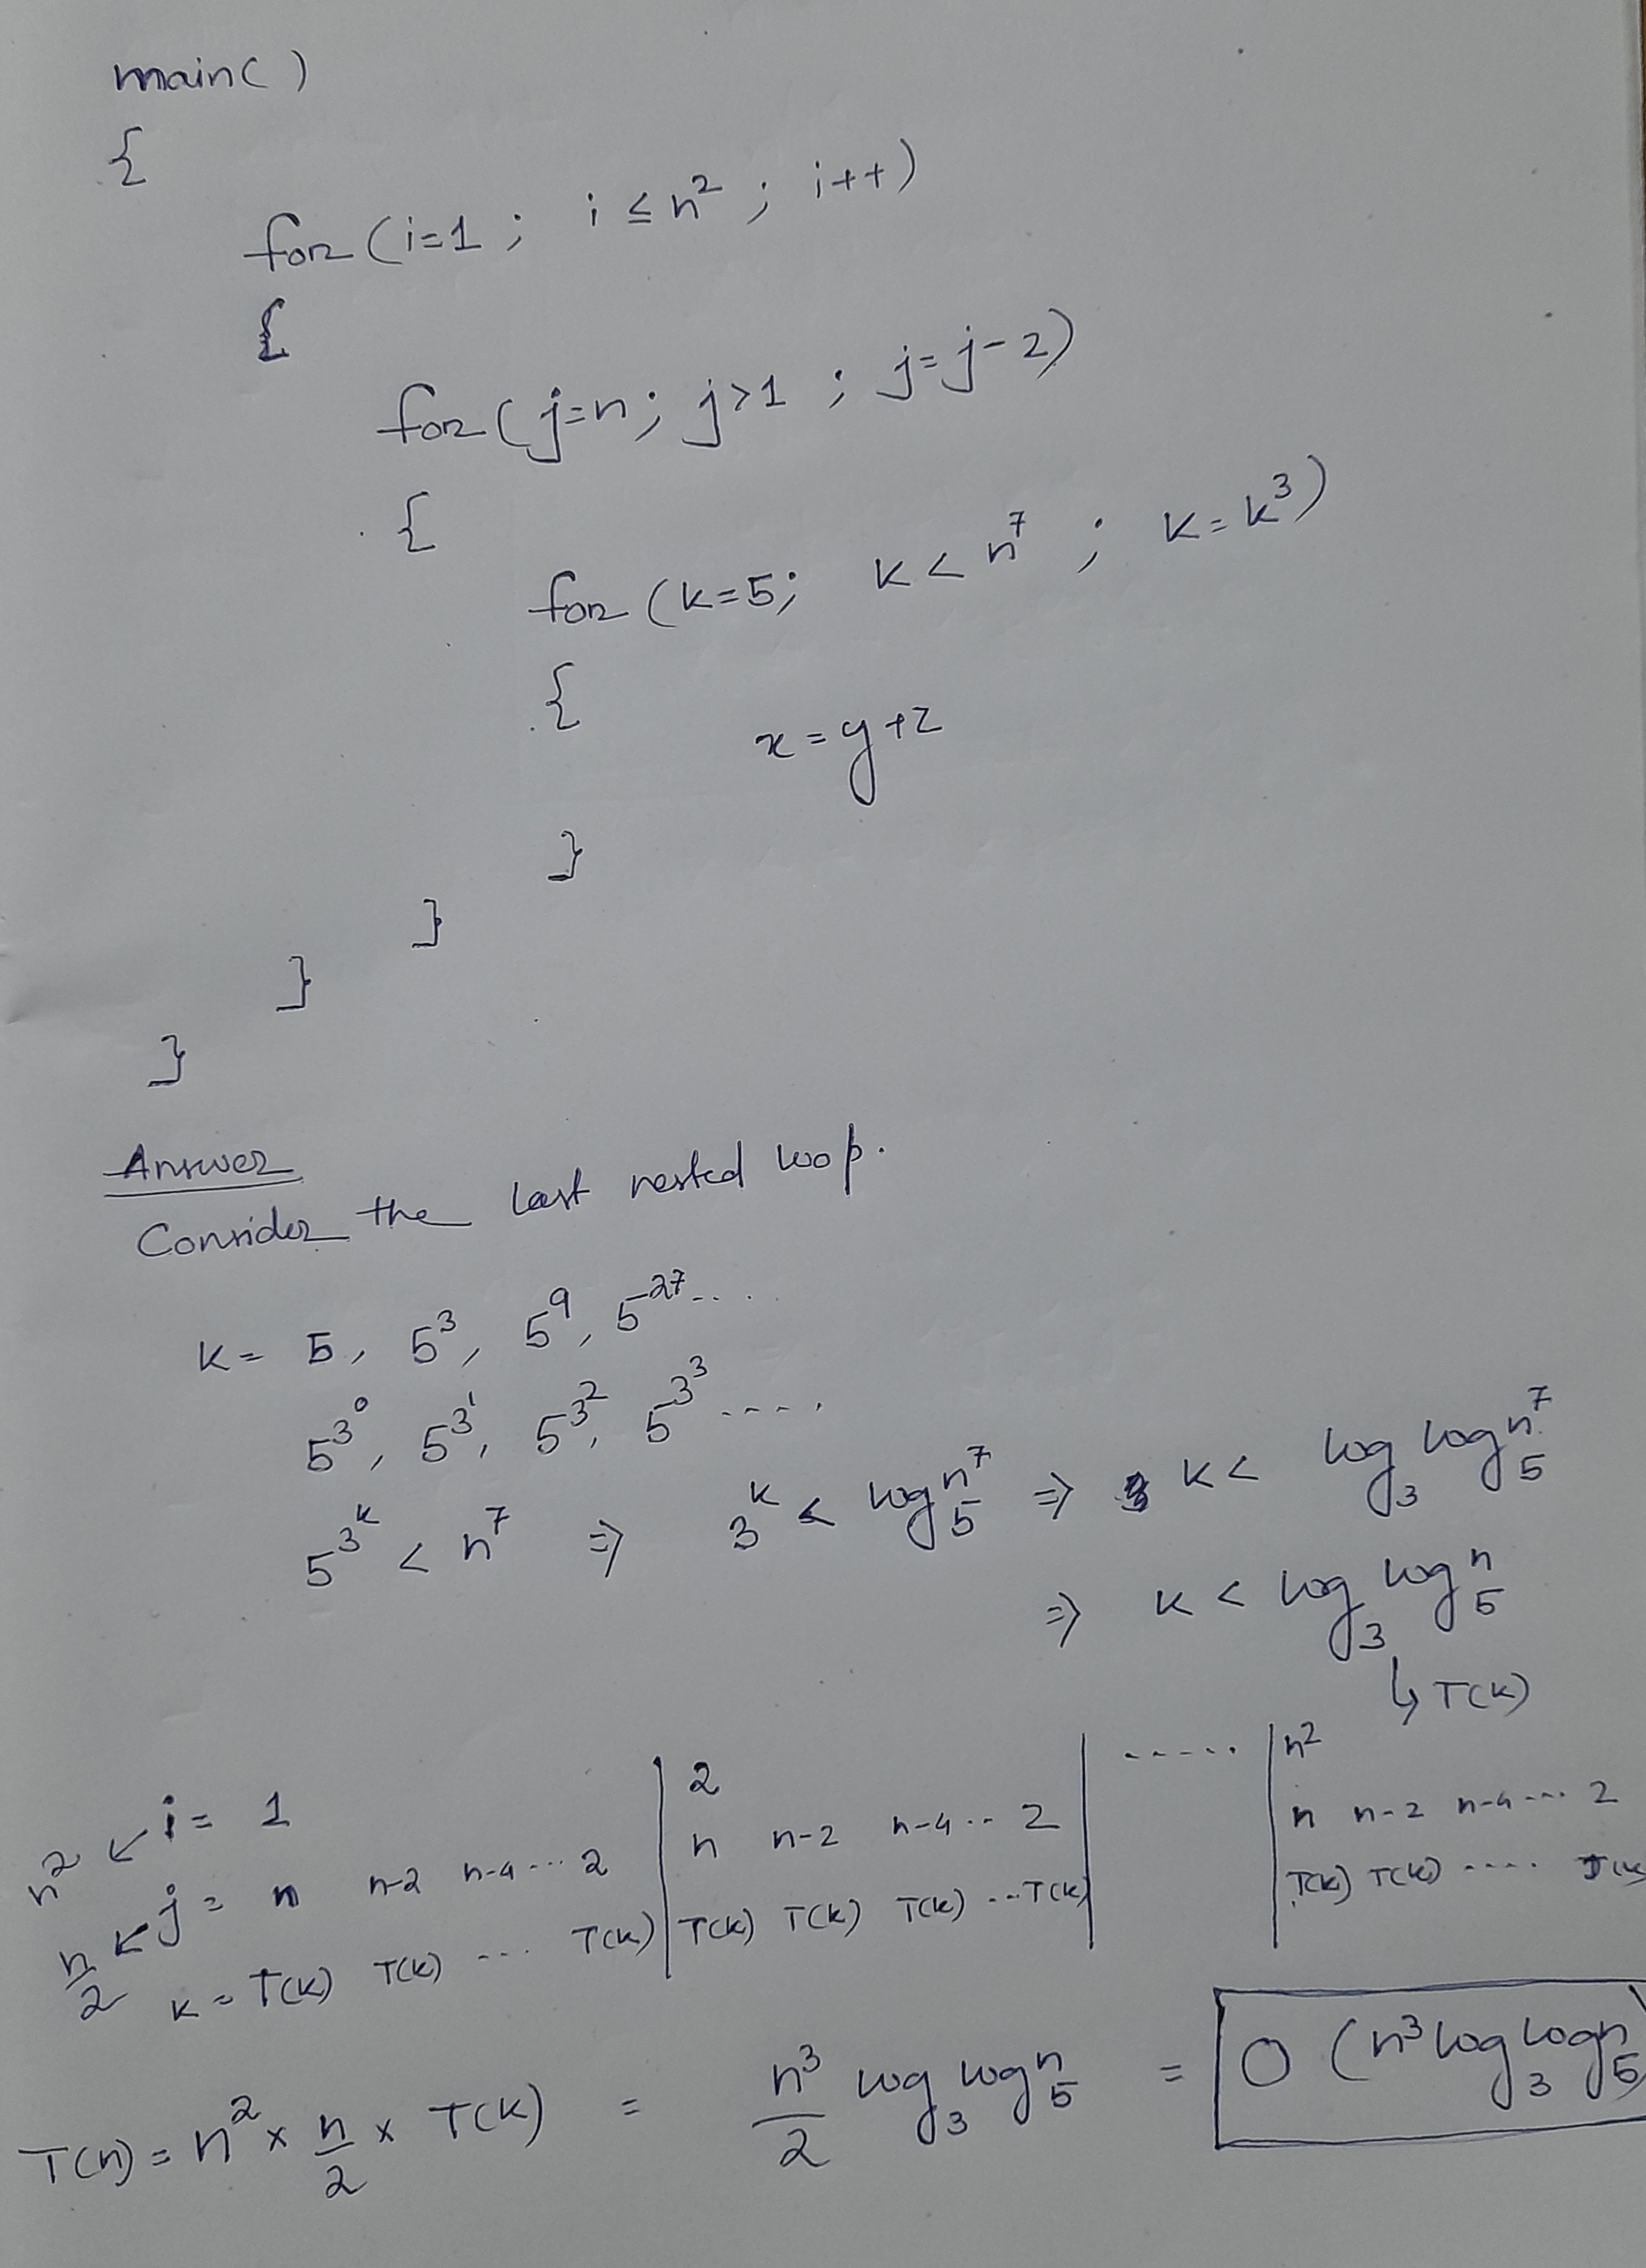 main( )
{
for (i=1 ; i ≤ n² ; i++)
{
for ( j=n ; j>1 ; j=j-2)
{
for (k=5; k < n⁷ ; k=k³)
{
x = y+z
}
}
}
}
Answer
Consider the last nested loop.
k = 5, 5³, 5⁹, 5²⁷....
5^3^0, 5^3^1, 5^3^2, 5^3^3 ....,
5^3^k < n⁷ ⇒ 3^k < log_5 n⁷ ⇒ k < log_3 log_5 n⁷
⇒ k < log_3 log_5 n
↳ T(k)
n² ↙ i = 1 | 2 | ..... | n²
n/2 ↙ j = n n-2 n-4 ... 2 | n n-2 n-4 .. 2 | | n n-2 n-4 ... 2
k = T(k) T(k) ... T(k) | T(k) T(k) T(k) ...T(k) | | T(k) T(k) .... T(k
T(n) = n² × n/2 × T(k) = n³/2 log_3 log_5 n = O (n³ log_3 log_5 n)